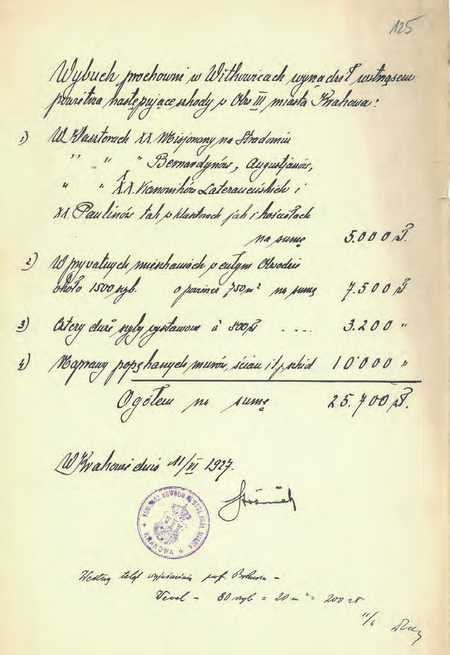 125
Wybuch prochowni w Witkowicach wyrządził wstrząsem
powietrza następujące szkody w Obw. III miasta Krakowa:
1) W Klasztorach XX. Misjonarzy na Stradomiu
" " " Bernardynów, Augustjanów,
" " X.X. Kanoników Laterańskich i
XX. Paulinów tak w klasztorach jak i kościołach
na sumę 5.000 zł.
2) W prywatnych mieszkaniach w całym Obwodzie
około 1500 szyb. o powierz. 750 m² na sumę 7.500 zł.
3) Cztery duże szyby wystawowe à 800 zł .... 3.200 "
4) Naprawy popękanych murów, ścian i t. p. szkód 10.000 "
Ogółem na sumę 25.700 zł.
W Krakowie dnia 11/VI 1927.
KRAKOWA
Według
Wawel – 80 szyb = 20 m² = 200 zł